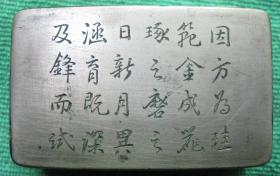 因方为珪
範金成器
琢之磨之
日新月異
涵育既深
及鋒而試